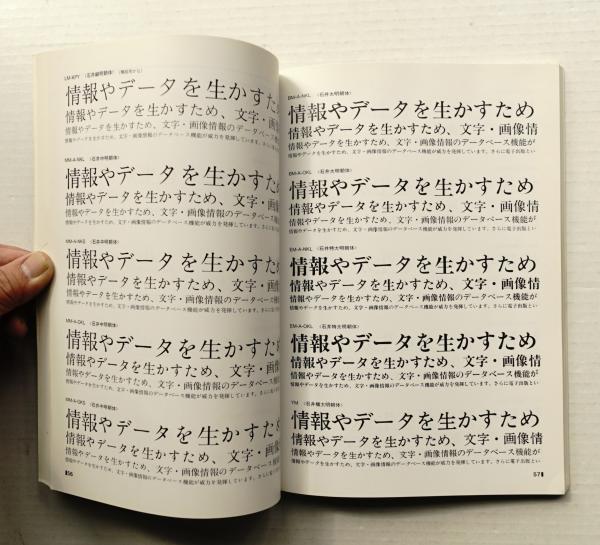 LM-NPY （石井細明朝体）（横組用かな）
情報やデータを生かすため
情報やデータを生かすため、文字・画像
情報やデータを生かすため、文字・画像情報のデータベース
情報やデータを生かすため、文字・画像情報のデータベース機能が威力を発揮しています。さらに電
MM-A-NKL （石井中明朝体）
情報やデータを生かすため
情報やデータを生かすため、文字・画
情報やデータを生かすため、文字・画像情報のデータベース機
情報やデータを生かすため、文字・画像情報のデータベース機能が威力を発揮しています。さらに
MM-A-NKS （石井中明朝体）
情報やデータを生かすため
情報やデータを生かすため、文字・画
情報やデータを生かすため、文字・画像情報のデータベース機
情報やデータを生かすため、文字・画像情報のデータベース機能が威力を発揮しています。さらに
MM-A-OKL （石井中明朝体）
情報やデータを生かすため
情報やデータを生かすため、文字・画
情報やデータを生かすため、文字・画像情報のデータベース機
情報やデータを生かすため、文字・画像情報のデータベース機能が威力を発揮しています。さらに
MM-A-OKS （石井中明朝体）
情報やデータを生かすため
情報やデータを生かすため、文字・画
情報やデータを生かすため、文字・画像情報のデータベース機
情報やデータを生かすため、文字・画像情報のデータベース機能が威力を発揮しています。さらに
56
BM-A-NKL （石井太明朝体）
情報やデータを生かすため
情報やデータを生かすため、文字・画像情
情報やデータを生かすため、文字・画像情報のデータベース機能が
情報やデータを生かすため、文字・画像情報のデータベース機能が威力を発揮しています。さらに電子出版とい
BM-A-OKL （石井太明朝体）
情報やデータを生かすため
情報やデータを生かすため、文字・画像情
情報やデータを生かすため、文字・画像情報のデータベース機能が
情報やデータを生かすため、文字・画像情報のデータベース機能が威力を発揮しています。さらに電子出版とい
EM-A-NKL （石井特太明朝体）
情報やデータを生かすため
情報やデータを生かすため、文字・画像情
情報やデータを生かすため、文字・画像情報のデータベース機能が
情報やデータを生かすため、文字・画像情報のデータベース機能が威力を発揮しています。さらに電子出版とい
EM-A-OKL （石井特太明朝体）
情報やデータを生かすため
情報やデータを生かすため、文字・画像情
情報やデータを生かすため、文字・画像情報のデータベース機能が
情報やデータを生かすため、文字・画像情報のデータベース機能が威力を発揮しています。さらに電子出版とい
YM （石井横太明朝体）
情報やデータを生かすため
情報やデータを生かすため、文字・画像情
情報やデータを生かすため、文字・画像情報のデータベース機能が
情報やデータを生かすため、文字・画像情報のデータベース機能が威力を発揮しています。さらに電子出版とい
57